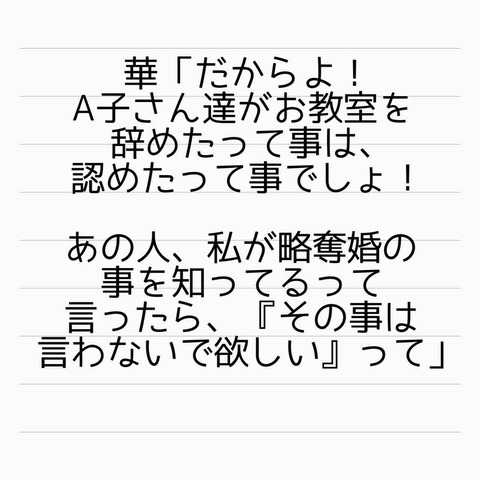 華「だからよ！
A子さん達がお教室を
辞めたって事は、
認めたって事でしょ！
あの人、私が略奪婚の
事を知ってるって
言ったら、『その事は
言わないで欲しい』って」